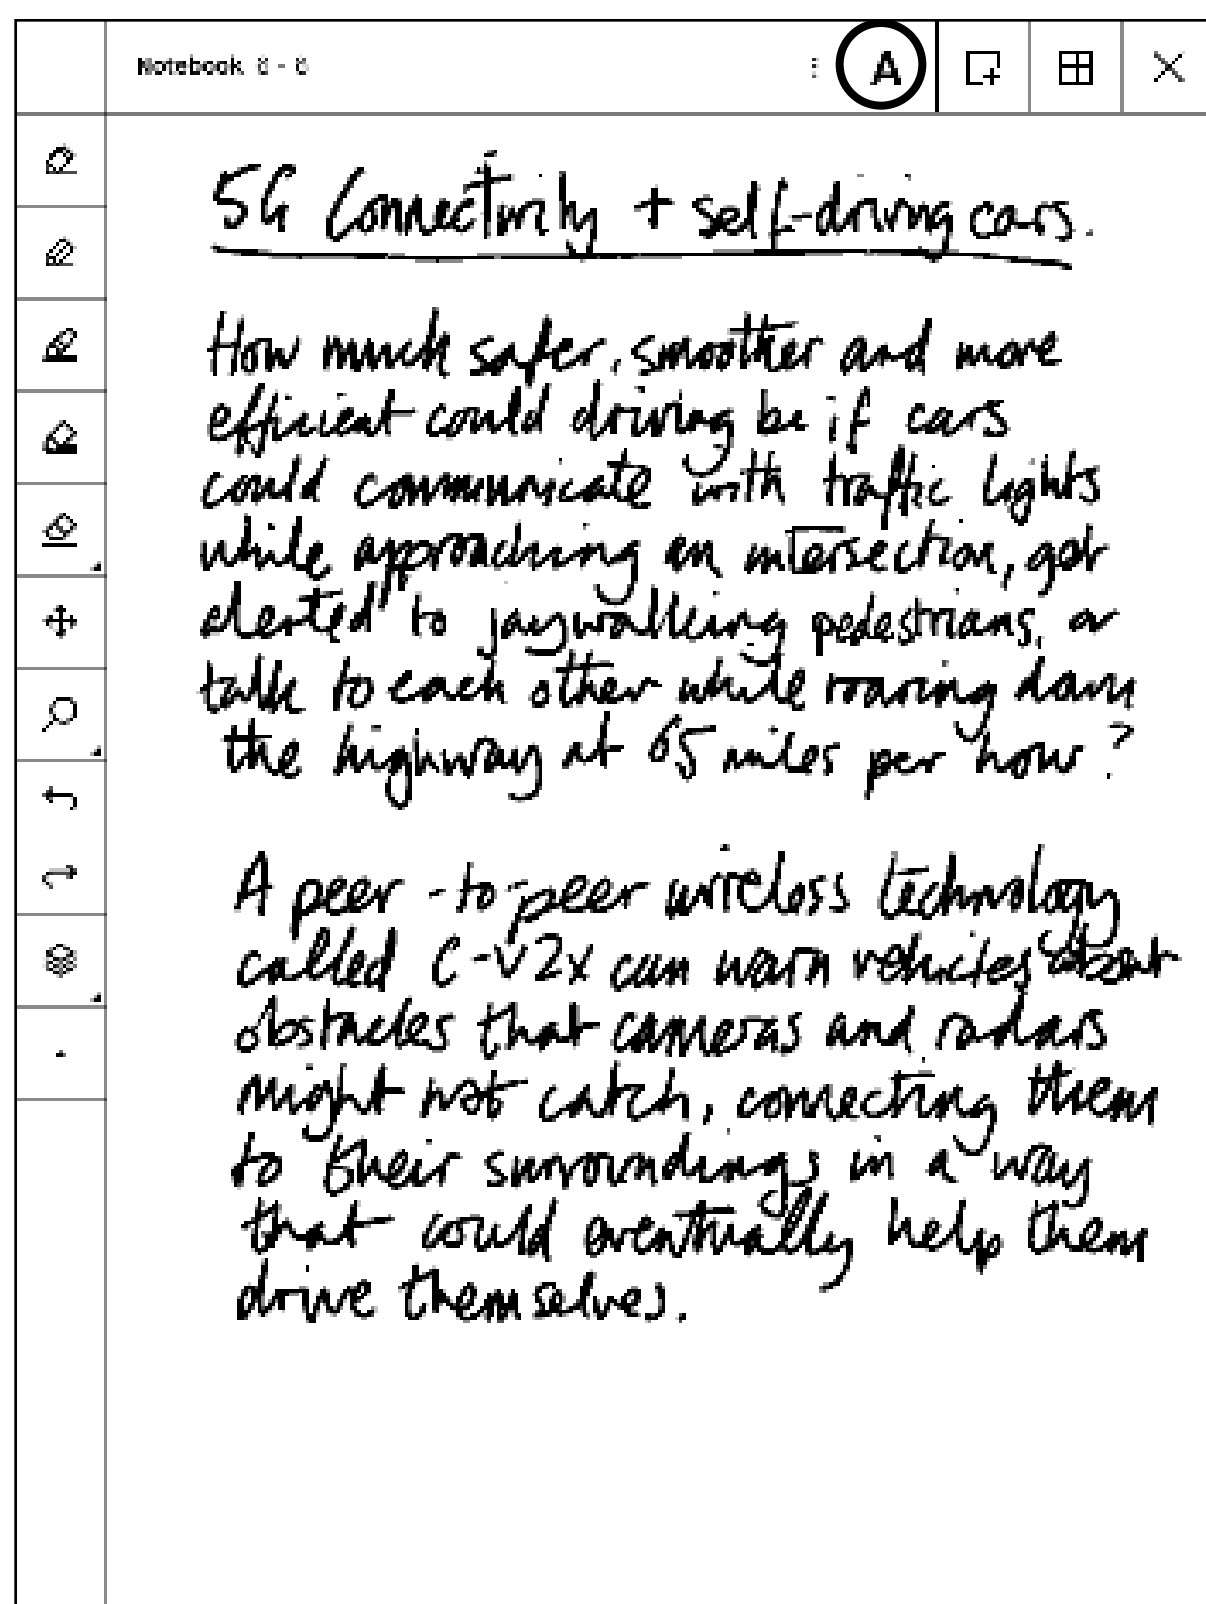 Notebook 6 - 6
A
5G Connectivity + self-driving cars.
How much safer, smoother and more
efficient could driving be if cars
could communicate with traffic lights
while approaching an intersection, got
alerted to jaywalking pedestrians, or
talk to each other while roaring down
the highway at 65 miles per hour?
A peer-to-peer wireless technology
called C-V2X can warn vehicles about
obstacles that cameras and radars
might not catch, connecting them
to their surroundings in a way
that could eventually help them
drive themselves.